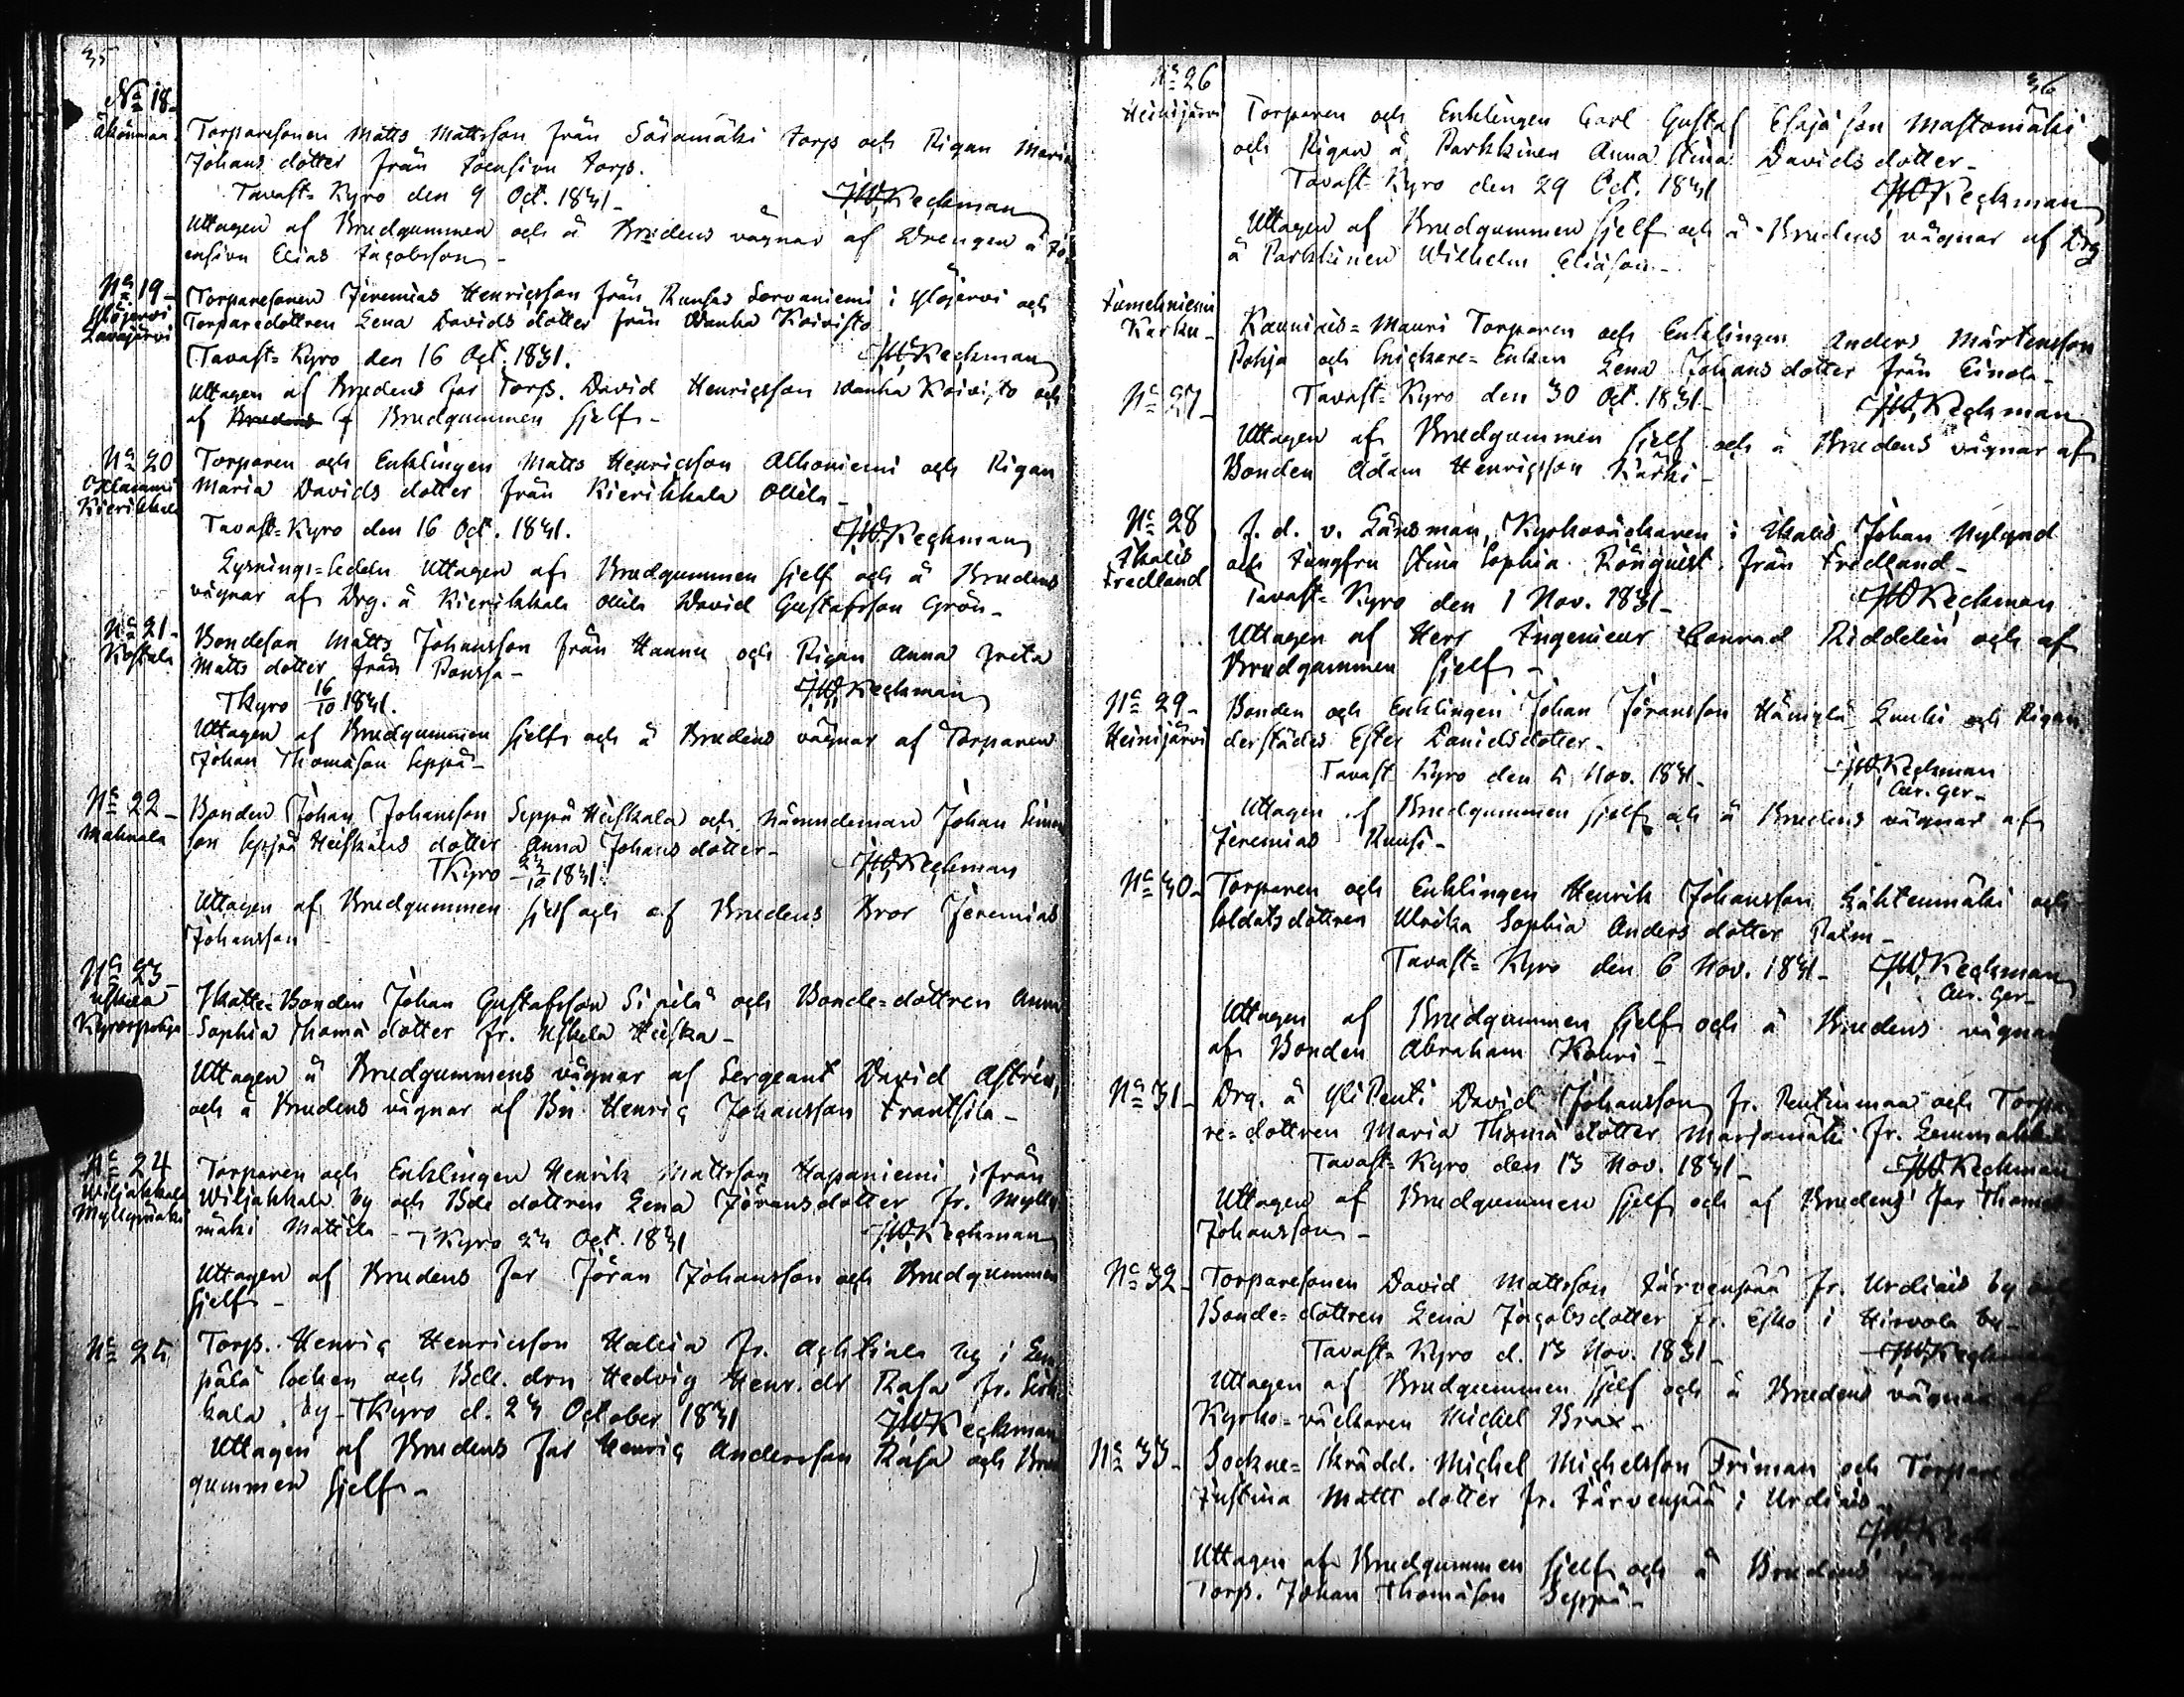 35
No 18
Torparesonen Matts Mattsson från Särämäki torp och Pigan Maria
Johans dotter från Joensivu torp.
Tavast-Kyro den 9 Oct. 1831
JWKeckman
Uttagen af Brudgummen och å Brudens vägnar af Drengen å Jo
ensivu Elias Jacobsson
No 19
Ylöjervi
Lavajärvi
Torparesonen Jeremias Henricsson från Runsas Sorvaniemi i Ylöjervi och
Torparedottren Lena Davids dotter från Wanha Koivisto
Tavast-Kyro den 16 Oct. 1831.
JWKeckman
Uttagen af Brudens far Torp. David Henricsson Wanha Koivisto och
af Brudens Brudgummen sjelf
No 20
Kierikkala
Torparen och Enklingen Matts Henricsson Alhoniemi och Pigan
Maria Davids dotter från Kierikkala Ollila
Tavast-Kyro den 16 Oct. 1831.
JWKeckman
Lysnings-sedeln Uttagen af Brudgummen sjelf och å Brudens
vägnar af Drg. å Kierikkala Ollila David Gustafsson Grön
No 21
Koskela
Bondeson Matts Johansson från Hannu och Pigan Anna Greta
Matts dotter från Ponssa
TKyro 16/10 1831.
JWKeckman
Uttagen af Brudgummen sjelf och å Brudens vägnar af Torparen
Johan Thomason Seppä
No 22
Mahnala
Bonden Johan Johansson Seppä Heiskala och Nämndeman Johan Simon
son Seppä Heiskalas dotter Anna Johans dotter
TKyro 23/10 1831.
JWKeckman
Uttagen af Brudgummen sjelf och af Brudens Bror Jeremias
Johansson
No 23
Uskela
Kyröspohja
Skatte-Bonden Johan Gustafsson Sipilä och Bonde-dottren Anna
Sophia Thoma dotter fr. Uskela Heiska
Uttagen å Brudgummens vägnar af Sergeant David Astrén,
och å Brudens vägnar af Bn Henric Johansson Frantsila
No 24
Wiljakkala
Myllymäki
Torparen och Enklingen Henrik Mattsson Hapaniemi ifrån
Wiljakkala by och Bde dottren Lena Jöransdotter fr. Mylly
mäki Mattila TKyro 23 Oct. 1831
JWKeckman
Uttagen af Brudens far Jöran Johansson och Brudgummen
sjelf
No 25
Torp. Henric Henricsson Hakia fr. by i Lem
pälä Socken och Bde. drn Hedvig Henr. dr Rasa fr.
kala by TKyro d. 23 October 1831
JWKeckman
Uttagen af Brudens far Henric Andersson Rasa och Brud
gummen sjelf
36
No 26
Heinijärvi
Torparen och Enklingen Carl Gustaf Esaja son Mastomäki
och Pigan å Parkkinen Anna Stina Davids dotter
Tavast-Kyro den 29 Oct. 1831
JWKeckman
Uttagen af Brudgummen sjelf och å Brudens vägnar af Drg
å Parkkinen Wilhelm Eliason
Jumesniemi
Karhu
Kauniais-Mauri Torparen och Enklingen Anders Mårtensson
Pohja och Snickare-Enkan Lena Johans dotter från Einola
No 27
Tavast-Kyro den 30 Oct. 1831
JWKeckman
Uttagen af Brudgummen sjelf och å Brudens vägnar af
Bonden Adam Henricsson Karhi
No 28
Ikalis
Fredland
f. d. v. Länsman, Kyrkoväckaren i Ikalis Johan Nylund
och Jungfru Stina Sophia Rönquist från Fredland
Tavast-Kyro den 1 Nov. 1831
JWKeckman
Uttagen af Herr Ingenieur Conrad Riddelin och af
Brudgummen sjelf
No 29
Heinijärvi
Bonden och Enklingen Johan Jöransson Hämylä Luuki och Pigan
derstädes Ester Danielsdotter
Tavast Kyro den 5 Nov. 1831
JWKeckman
Cur. Ger
Uttagen af Brudgummen sjelf och å Brudens vägnar af
Jeremias Ruusi
No 30
Torparen och Enklingen Henrik Johansson Lähteenmäki och
Soldatsdottren Ulrika Sophia Anders dotter Palm
Tavast-Kyro den 6 Nov. 1831
JWKeckman
Cur. Ger
Uttagen af Brudgummen sjelf och å Brudens vägnar
af Bonden Abraham Kauri
No 31
Drg. å YliPenti David Johansson fr. Pentinmaa och Torpa
re-dottren Maria Thoma dotter Marjomäki fr.
Tavast-Kyro den 13 Nov. 1831
JWKeckman
Uttagen af Brudgummen sjelf och af Brudens far Thomas
Johansson
No 32
Torparesonen David Mattsson Järvenpää fr. Urdiais by och
Bonde-dottren Lena Jacobsdotter fr. Esko i Hirvola by
Tavast-Kyro d. 13 Nov. 1831
JWKeckman
Uttagen af Brudgummen sjelf och å Brudens vägnar af
Kyrko-väckaren Michel Brax
No 33
Sockne-Skrädd. Michel Michelsson Friman och Torpare
Justina Matts dotter fr. Järvenpää i Urdiais
JWKeck
Uttagen af Brudgummen sjelf och å Brudens vägnar
Torp. Johan Thomason Seppä